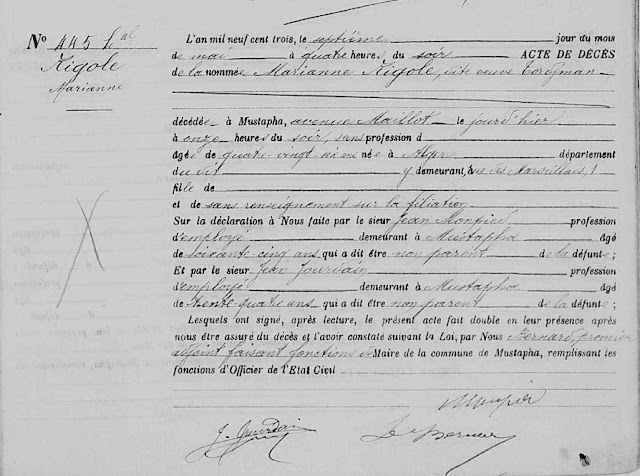 N° 445 fal
Rigole
Marianne
L'an mil neuf cent trois, le septième jour du mois
de mai à quatre heures du soir ACTE DE DÉCÈS
de la nommée Marianne Rigole, dite veuve Cordman
décédée à Mustapha, avenue Maillot le jourd'hier
à onze heures du soir, sans profession d
agée de quatre vingt née à Alger département
du dit y demeurant, rue des Marseillais, 1
fille de
et de sans renseignement sur la filiation
Sur la déclaration à Nous faite par le sieur Jean Monpied profession
d'employé demeurant à Mustapha agé
de soixante cinq ans qui a dit être non parent de la défunte;
Et par le sieur Jean Jourdain profession
d'employé demeurant à Mustapha agé
de trente quatre ans qui a dit être non parent de la défunte;
Lesquels ont signé, après lecture, le présent acte fait double en leur présence après
nous être assuré du décès et l'avoir constaté suivant la Loi, par Nous Bernard, premier
adjoint faisant fonctions de Maire de la commune de Mustapha, remplissant les
fonctions d'Officier de l'Etat Civil
J. Jourdain